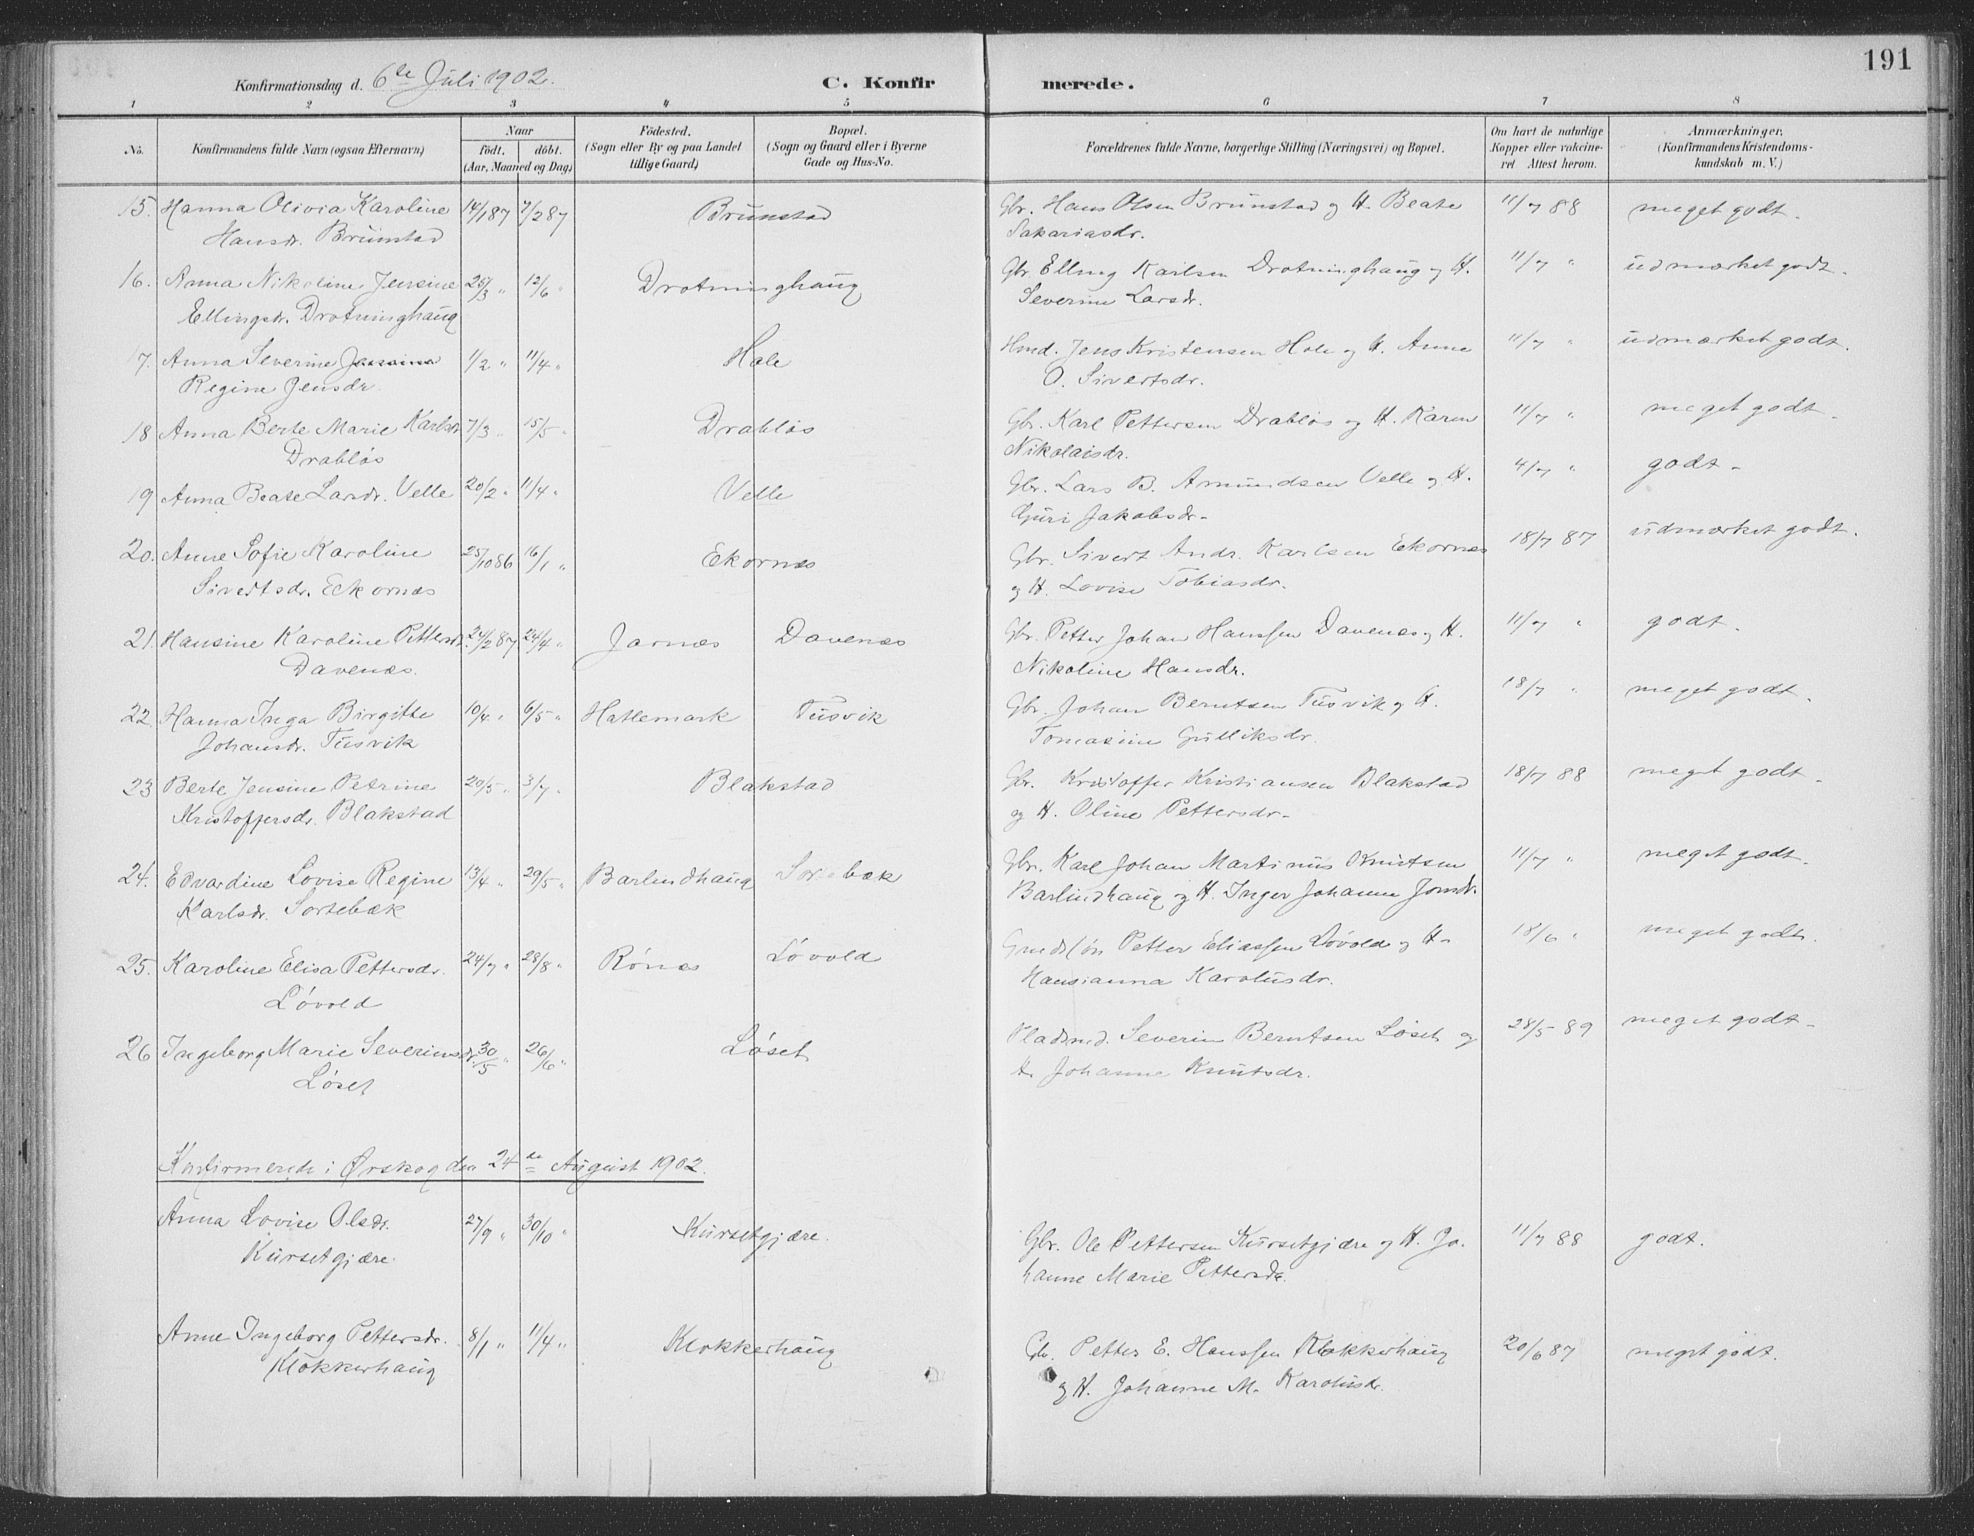 191
Konfirmationsdag d. 6te Juli 1902.
C. Konfirmerede.
1 2 3 4 5 6 7 8
No. Konfirmandens fulde Navn (ogsaa Efternavn) Naar födt. döbt. (Aar, Maaned og Dag) Födested. (Sogn eller By og paa Landet tillige Gaard) Bopæl. (Sogn og Gaard eller i Byerne Gade og Hus-No. Forældrenes fulde Navne, borgerlige Stilling (Næringsvei) og Bopæl. Om havt de naturlige Kopper eller vakcineret Attest herom. Anmærkninger. (Konfirmandens Kristendomskundskab m. V.)
15. Hanna Olivia Karoline 14/1 87 7/2 87 Brunstad Gbr. Hans Olsen Brunstad og H. Beate 11/7 88 meget godt.
Hansdr. Brunstad Sakariasdr.
16. Anna Nikoline Jensine 25/3 " 12/6 " Drotninghaug Gbr Elling Karlsen Drotninghaug og H. 11/7 " udmærket godt.
Ellingsdr. Drotninghaug Severine Larsdr.
17. Anna Severine Jensine 1/2 " 11/4 " Hole Hmd. Jens Kristensen Hole og H. Anne 11/7 " udmærket godt.
Regine Jensdr. O. Sivertsdr.
18 Anna Berte Marie Karlsdr. 7/3 " 15/5 " Drabløs Gbr. Karl Pettersen Drabløs og H. Karen 11/7 " meget godt.
Drabløs Nikolaisdr.
19 Anna Beate Larsdr. Velle 20/2 " 11/4 " Velle Gbr. Lars B. Amundsen Velle og H. 4/7 " godt.
Guri Jakobsdr.
20. Anne Sofie Karoline 25/10 86 16/1 " Ekornæs Gbr. Sivert Andr. Karlsen Ekornæs 18/7 87 udmærket godt.
Sivertsdr. Ekornæs og H. Lovise Tobiasdr.
21. Hansine Karoline Pettersdr. 24/2 87 24/4 " Jarnæs Davenæs Gbr. Petter Johan Hanssen Davenæs og H. 11/7 " godt.
Davenæs. Nikoline Hansdr.
22. Hanna Inga Birgitte 10/4 " 6/5 " Hatlemark Tusvik Gbr. Johan Berntsen Tusvik og H. 18/7 " meget godt.
Johansdr. Tusvik Tomasine Gulliksdr.
23 Berte Jensine Petrine 20/5 " 3/7 " Blakstad Gbr. Kristoffer Kristiansen Blakstad 18/7 88 meget godt.
Kristoffersdr. Blakstad og H. Oline Pettersdr.
24. Edvardine Lovise Regine 13/4 " 29/5 " Barlindhaug Sortebæk Gbr. Karl Johan Martinus Knutsen 11/7 " meget godt.
Karlsdr. Sortebæk Barlindhaug og H. Inger Johanne Jonsdr.
25. Karoline Elisa Pettersdr. 24/7 " 28/8 " Rönæs Lövold Petter Eliassen Lövold og H. 18/6 " meget godt.
Lövold Hansianna Karolusdr.
26 Ingeborg Marie Severinsdr. 30/5 " 26/6 " Løset Pladsmd. Severin Berntsen Løset og 28/5 89 meget godt.
Løset H. Johanne Knutsdr.
Konfirmerede i Ørskog den 24de August 1902.
Anna Lovise Olsdr. 27/9 " 30/10 " Kursetgjære. Gbr. Ole Pettersen Kursetgjære og H. Jo- 11/7 88 godt.
Kursetgjære. hanne Marie Pettersdr.
Anne Ingeborg Pettersdr. 8/1 " 11/4 " Klokkerhaug Gbr. Petter E. Hanssen Klokkerhaug 20/6 87 meget godt.
Klokkerhaug og H. Johanne M. Karolusdr.